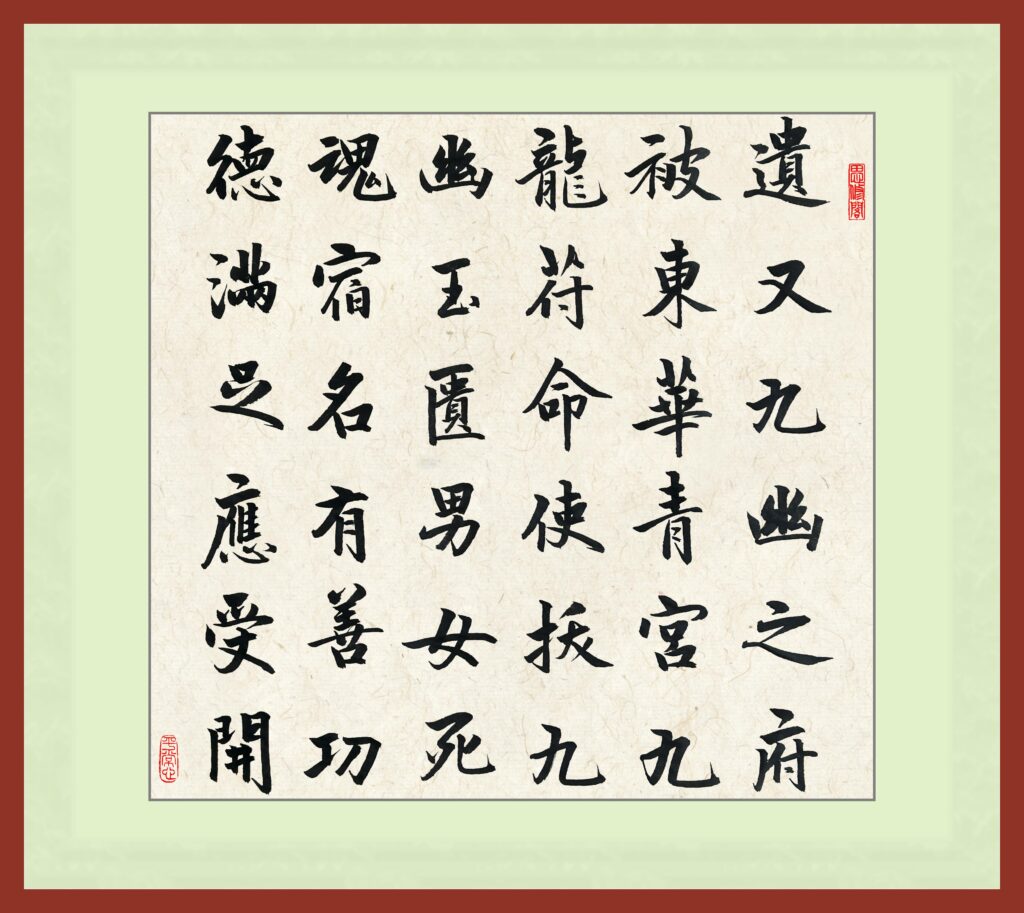 思修閣
遺又九幽之府
被東華青宮九
龍苻命使拔九
幽玉匱男女死
魂宿名有善功
德滿足應受開
平常心